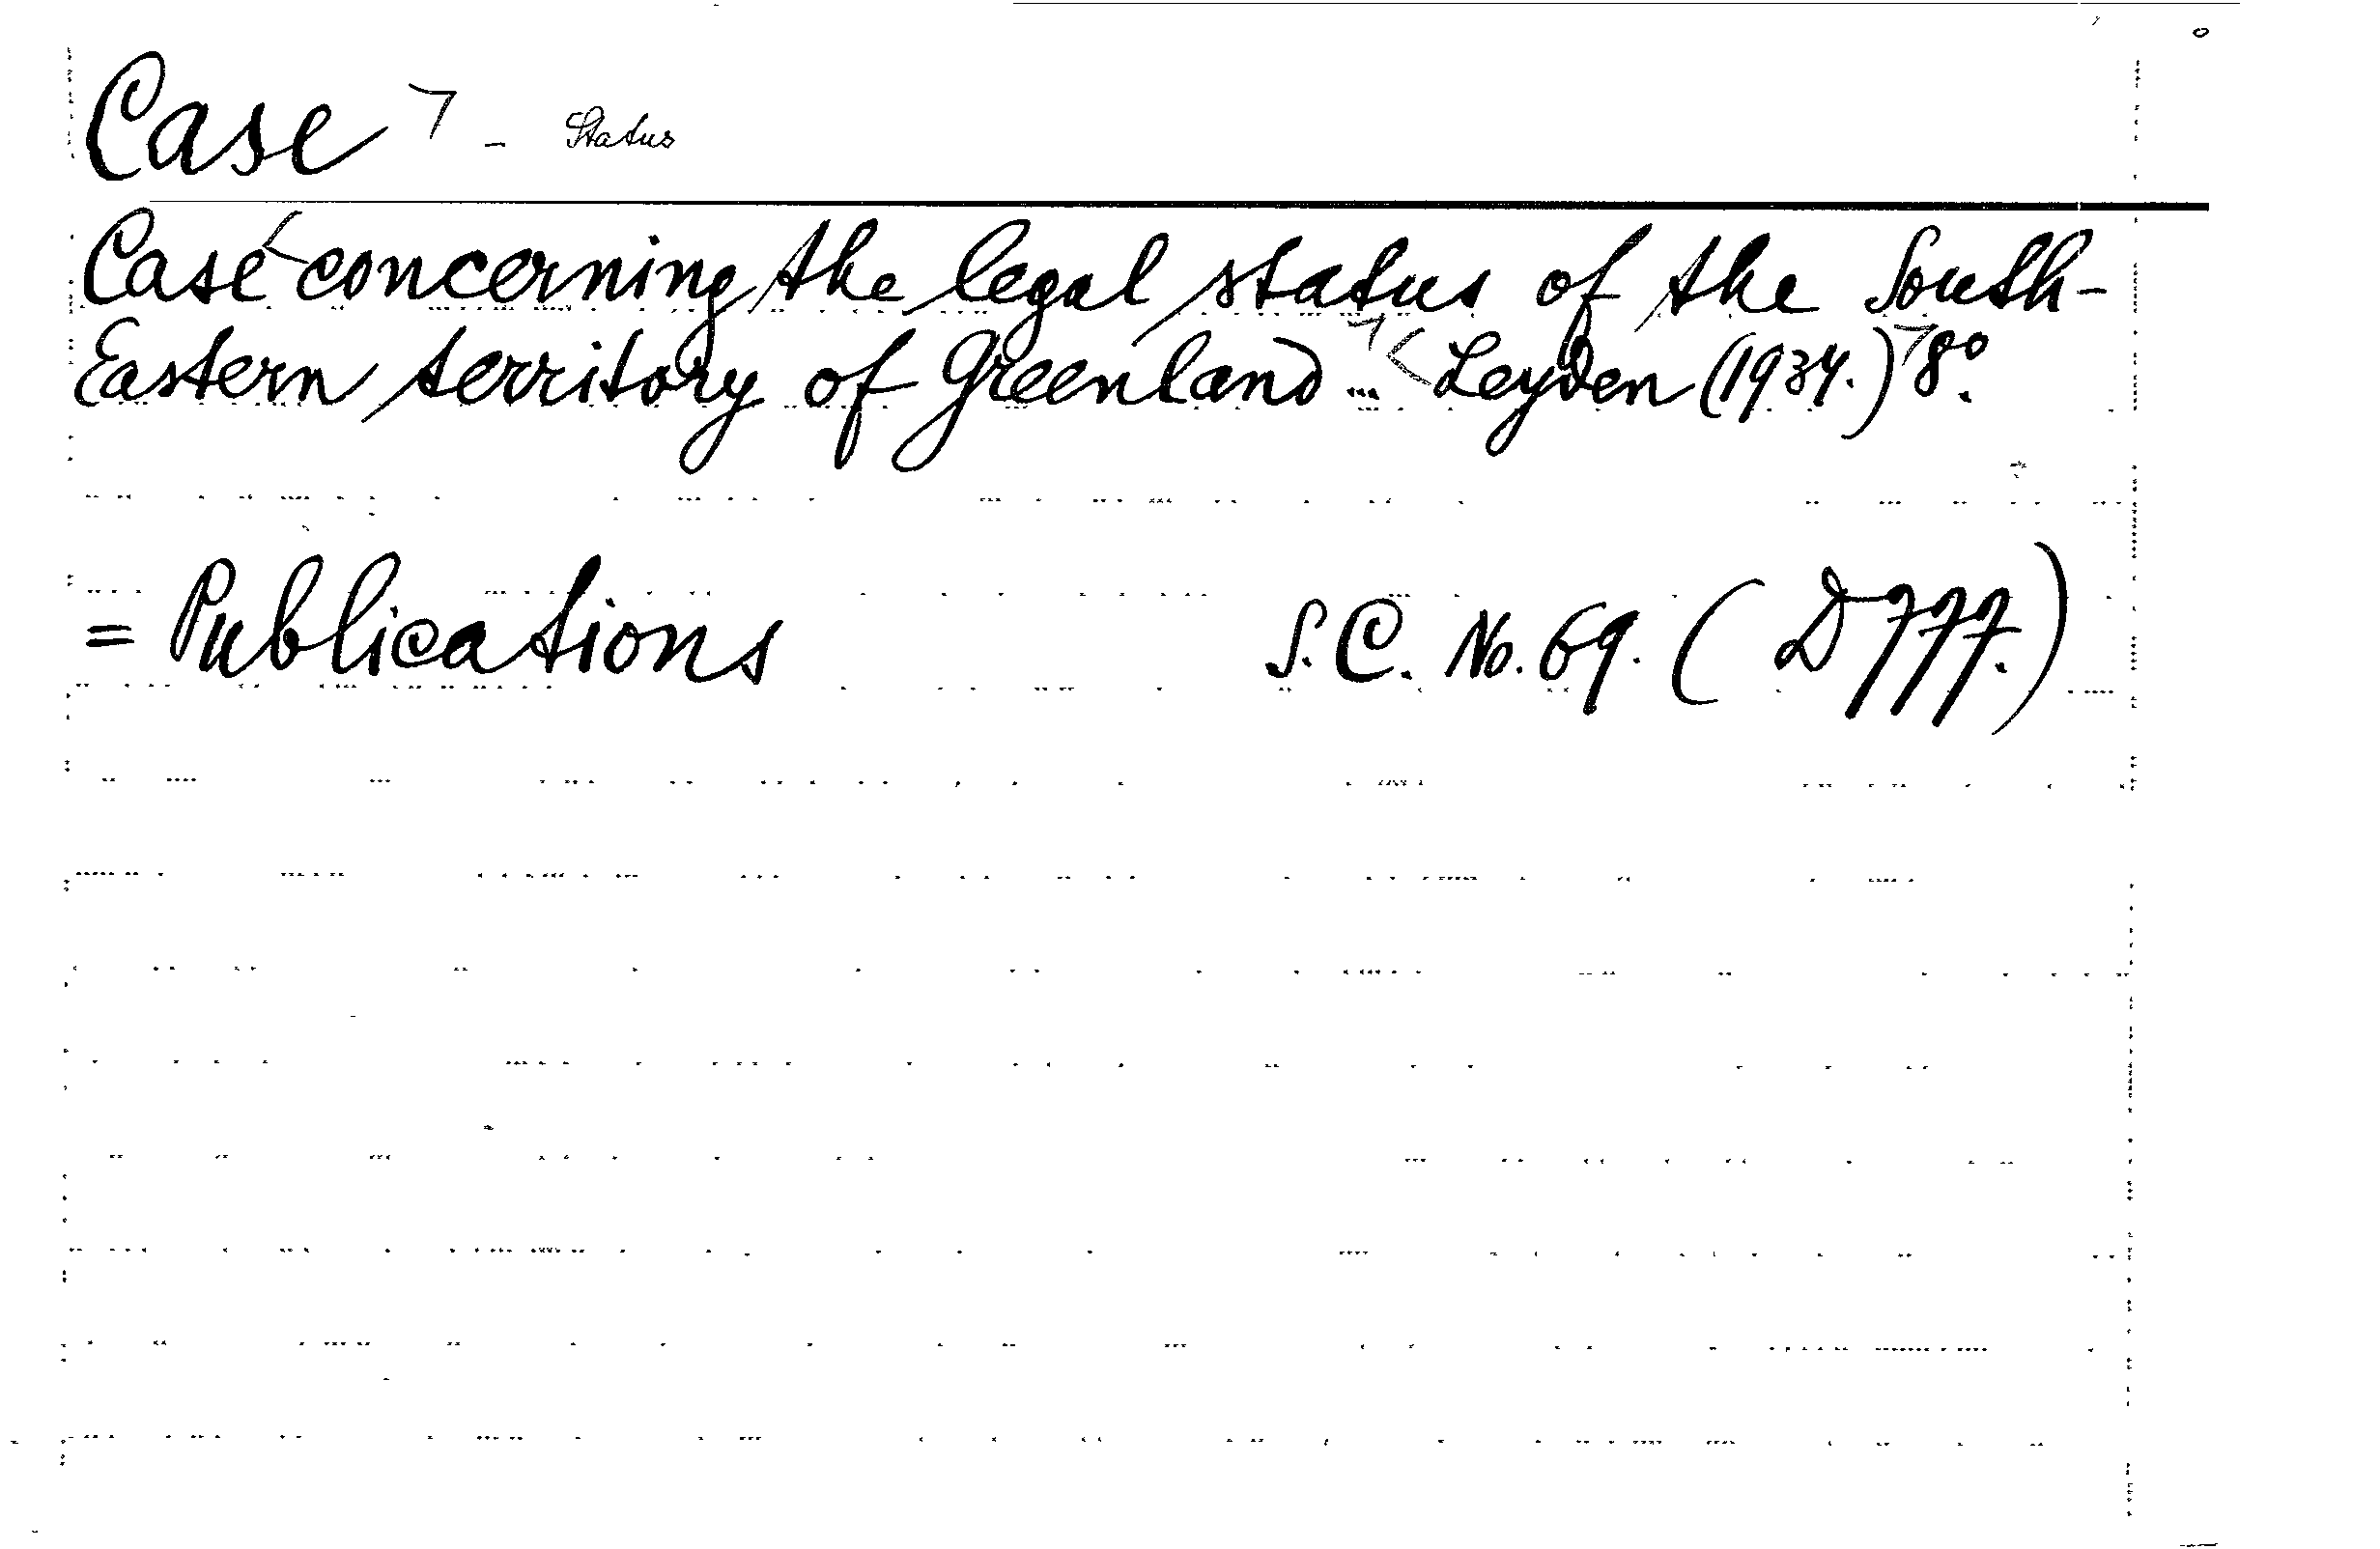 Case - Status
Case concerning the legal status of the South-
Eastern territory of Greenland... Leyden (1934.) 8°.
= Publications S.C. No. 69. (D 777.)